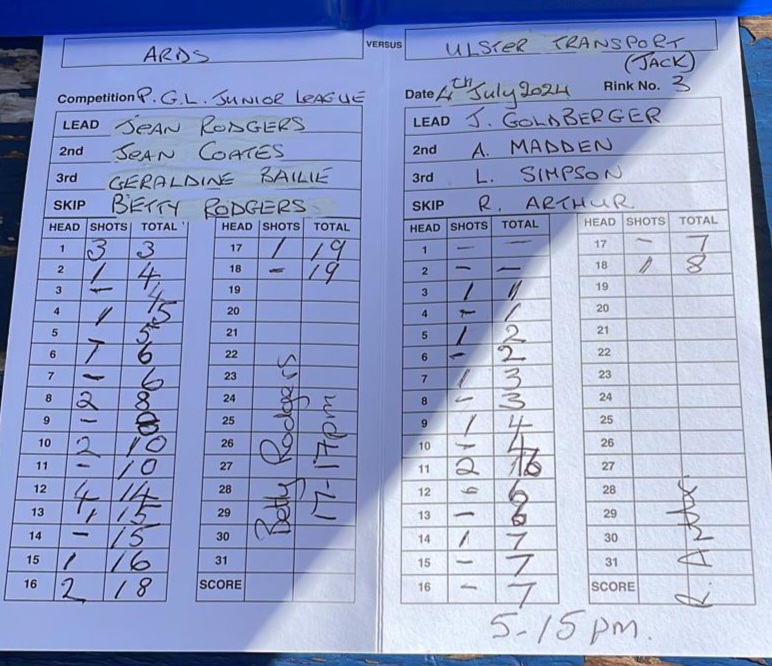 ARDS VERSUS ULSTER TRANSPORT
(JACK)
Competition P.G.L. JUNIOR LEAGUE
Date 4th July 2024 Rink No. 3
LEAD JEAN RODGERS
2nd JEAN COATES
3rd GERALDINE BAILIE
SKIP BETTY RODGERS
LEAD J. GOLDBERGER
2nd A. MADDEN
3rd L. SIMPSON
SKIP R. ARTHUR
HEAD SHOTS TOTAL HEAD SHOTS TOTAL
1 3 3 17 1 19
2 1 4 18 - 19
3 - 4 19
4 1 5 20
5 - 5 21
6 1 6 22
7 - 6 23
8 2 8 24
9 - 8 25
10 2 10 26
11 - 10 27
12 4 14 28
13 1 15 29
14 - 15 30
15 1 16 31
16 2 18 SCORE
Betty Rodgers
17-17pm
HEAD SHOTS TOTAL HEAD SHOTS TOTAL
1 - - 17 - 7
2 - - 18 1 8
3 1 1 19
4 - 1 20
5 1 2 21
6 - 2 22
7 1 3 23
8 - 3 24
9 1 4 25
10 - 4 26
11 2 6 27
12 - 6 28
13 - 6 29
14 1 7 30
15 - 7 31
16 - 7 SCORE
R. Arthur
5-15pm.